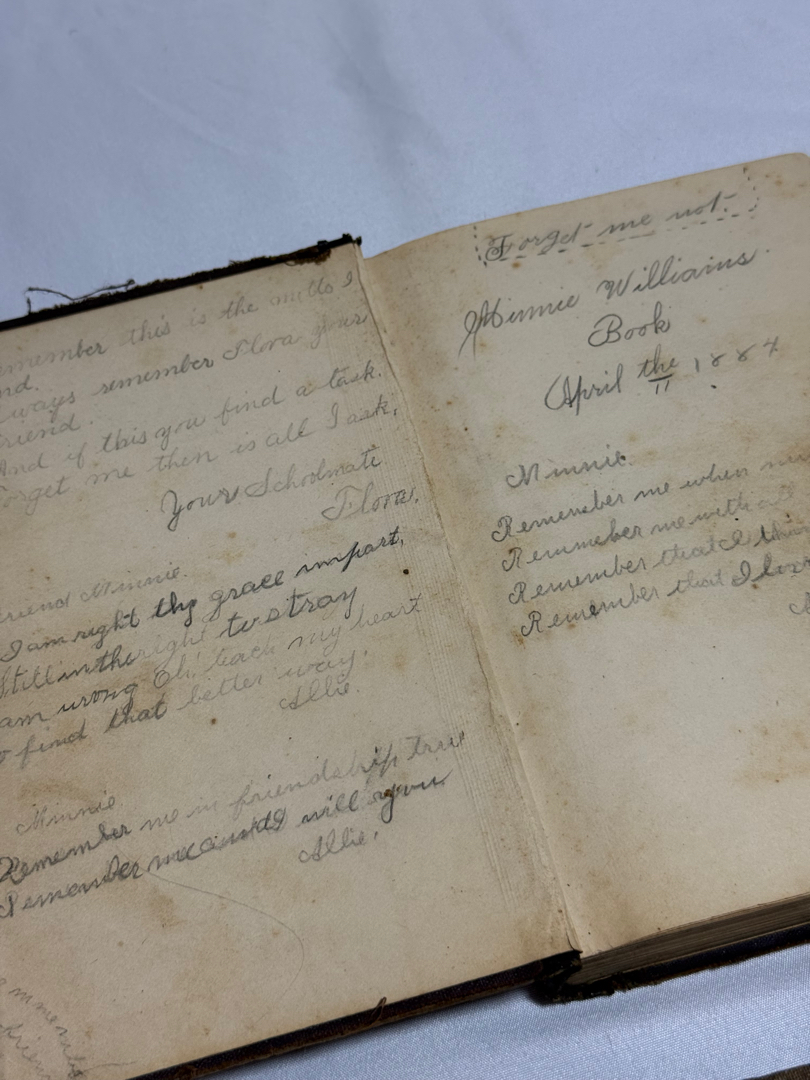 this is the
always remember Flora your
friend.
And if this you find a task.
Forget me then is all I ask.
Your Schoolmate
Flora.
friend Minnie.
I am right thy grace impart,
Still in the right to stray
am wrong Oh! teach my heart
to find that better way.
Allie.
Minnie.
Remember me in friendship true
Remember me and I will you
Allie.
Forget me not
Minnie Williams
Book
April the 11 1884
Minnie.
Remember me when
Remmeber me with all
Remember that I
Remember that I